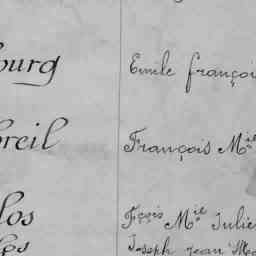 ourg Emile françoi
breil François M^el
los Fçois M^el Julie
Joseph Jean M